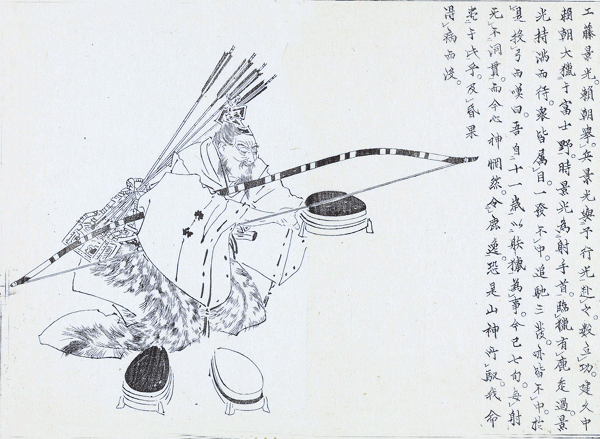 工藤景光。賴朝擧兵。景光與子行光赴之。數立功。建久中
賴朝大獵于富士野。時景光為射手首。臨獵有鹿走過景
光持滿而待。衆皆属目。一發不中。追馳三發。亦皆不中。於
是投弓而嘆曰。吾自十一歳以獵為事。今已七旬。每射
无不洞貫。而今心神惘然。令鹿逸。恐是山神所馭。我命
尽于此乎。及昏果
得病而没。